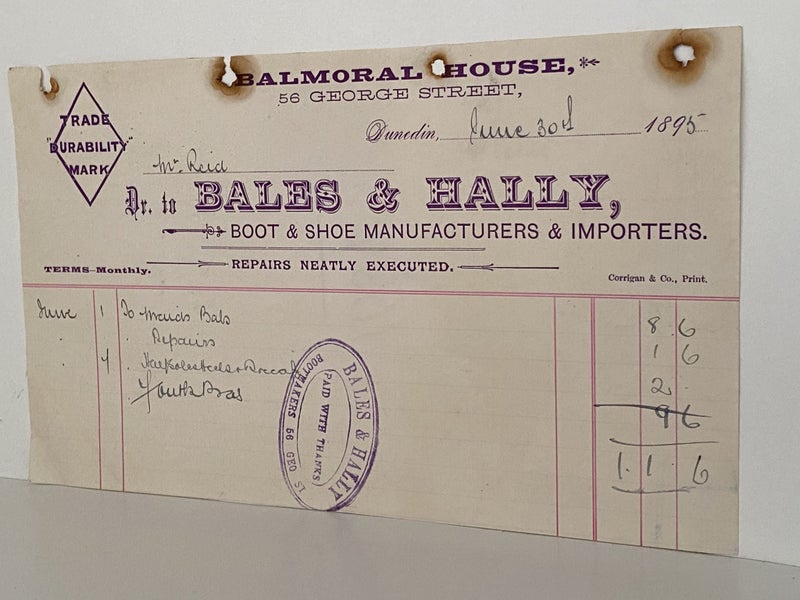 BALMORAL HOUSE,
56 GEORGE STREET,
TRADE
"DURABILITY"
MARK
Dunedin, June 30th 1895
Mr Reid
Dr. to BALES & HALLY,
BOOT & SHOE MANUFACTURERS & IMPORTERS.
REPAIRS NEATLY EXECUTED.
TERMS—Monthly.
Corrigan & Co., Print.
June 1 To Maids Bals 8 6
. . Repairs 1 6
. 4 . 2 .
. Youths 9 6
1 . 1 . 6
BALES & HALLY
BOOTMAKERS 56 GEO ST
PAID WITH THANKS